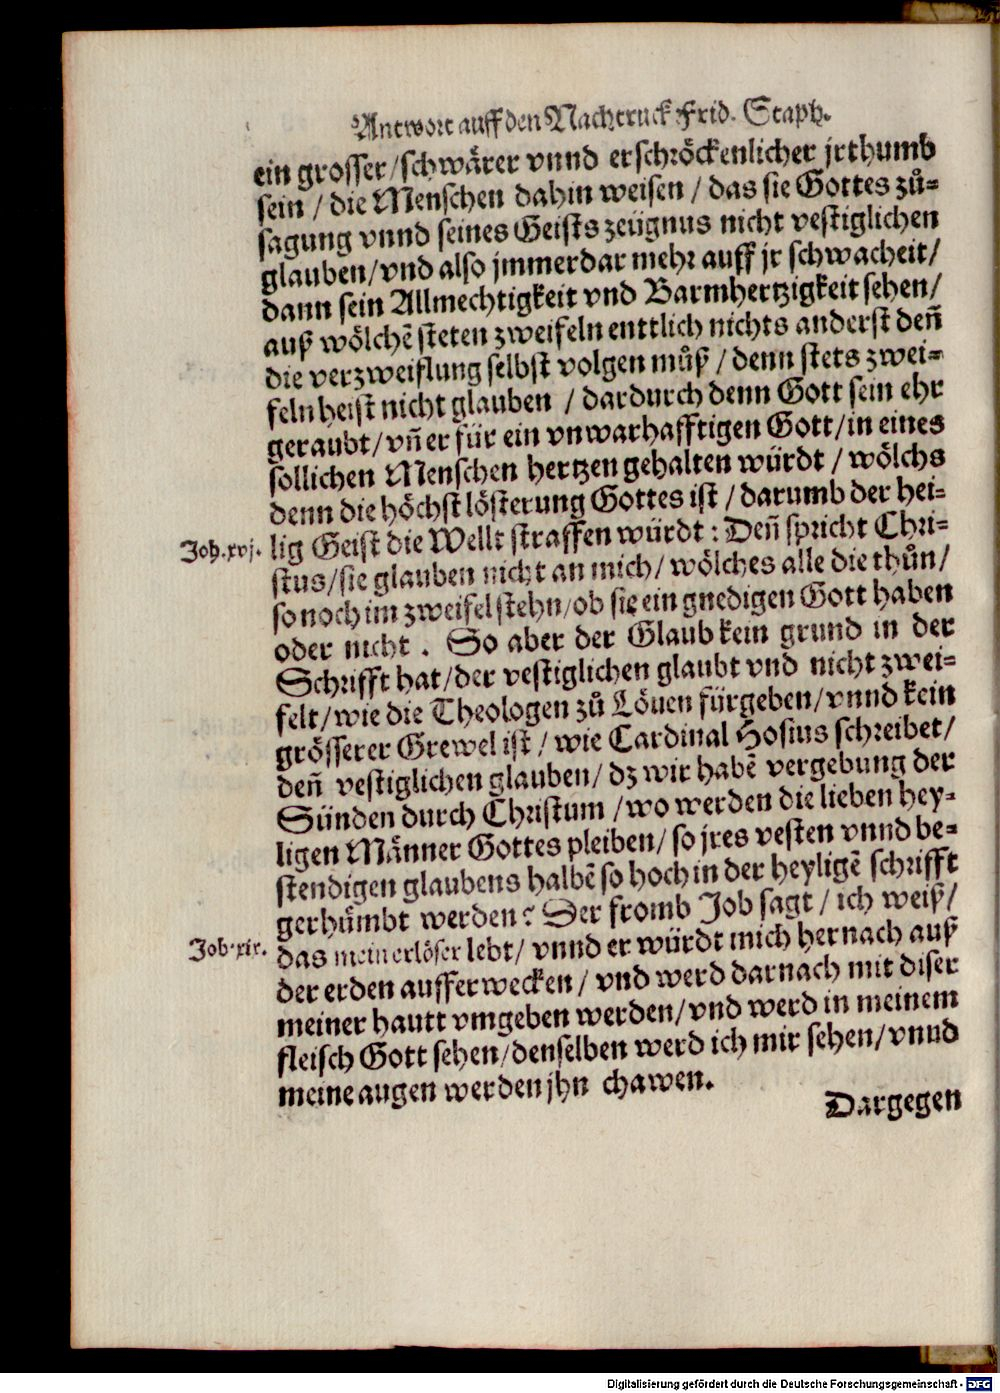 Antwort auff den Nachtruck Frid. Staph.
ein grosser / schwärer vnnd erschröckenlicher jrthumb
sein / die Menschen dahin weisen / das sie Gottes zů-
sagung vnnd seines Geists zeügnus nicht vestiglichen
glauben / vnd also jmmerdar mehr auff jr schwacheit /
dann sein Allmechtigkeit vnd Barmhertzigkeit sehen /
auß wölchē steten zweifeln enttlich nichts anderst deñ
die verzweiflung selbst volgen můß / denn stets zwei-
feln heist nicht glauben / dardurch denn Gott sein ehr
geraubt / vñ er für ein vnwarhafftigen Gott / in eines
sollichen Menschen hertzen gehalten würdt / wölchs
denn die höchst lösterung Gottes ist / darumb der hei-
Joh. xvj. lig Geist die Wellt straffen würdt : Deñ spricht Chri-
stus / sie glauben nicht an mich / wölches alle die thůn /
so noch im zweifel stehn / ob sie ein gnedigen Gott haben
oder nicht . So aber der Glaub kein grund in der
Schrifft hat / der vestiglichen glaubt vnd nicht zwei-
felt / wie die Theologen zů Löuen fürgeben / vnnd kein
grösserer Grewel ist / wie Cardinal Hosius schreibet /
deñ vestiglichen glauben / dz wir habē vergebung der
Sünden durch Christum / wo werden die lieben hey-
ligen Männer Gottes pleiben / so jres vesten vnnd be-
stendigen glaubens halbē so hoch in der heyligē schrifft
gerhůmbt werden? Der fromb Job sagt / ich weiß /
Job. xix. das mein erlöser lebt / vnnd er würdt mich hernach auß
der erden aufferwecken / vnd werd darnach mit diser
meiner hautt vmgeben werden / vnd werd in meinem
fleisch Gott sehen / denselben werd ich mir sehen / vnnd
meine augen werden jhn chawen.
Dargegen
Digitalisierung gefördert durch die Deutsche Forschungsgemeinschaft - DFG